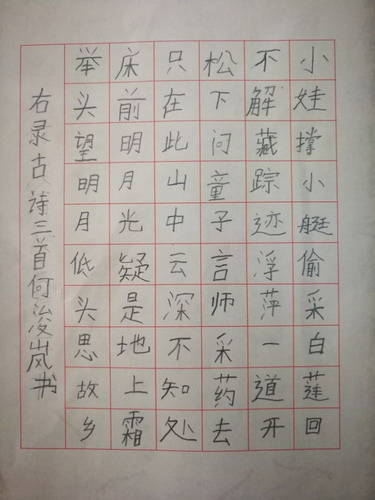 小娃撑小艇偷采白莲回
不解藏踪迹浮萍一道开
松下问童子言师采药去
只在此山中云深不知处
床前明月光疑是地上霜
举头望明月低头思故乡
右录古诗三首何浚岚书